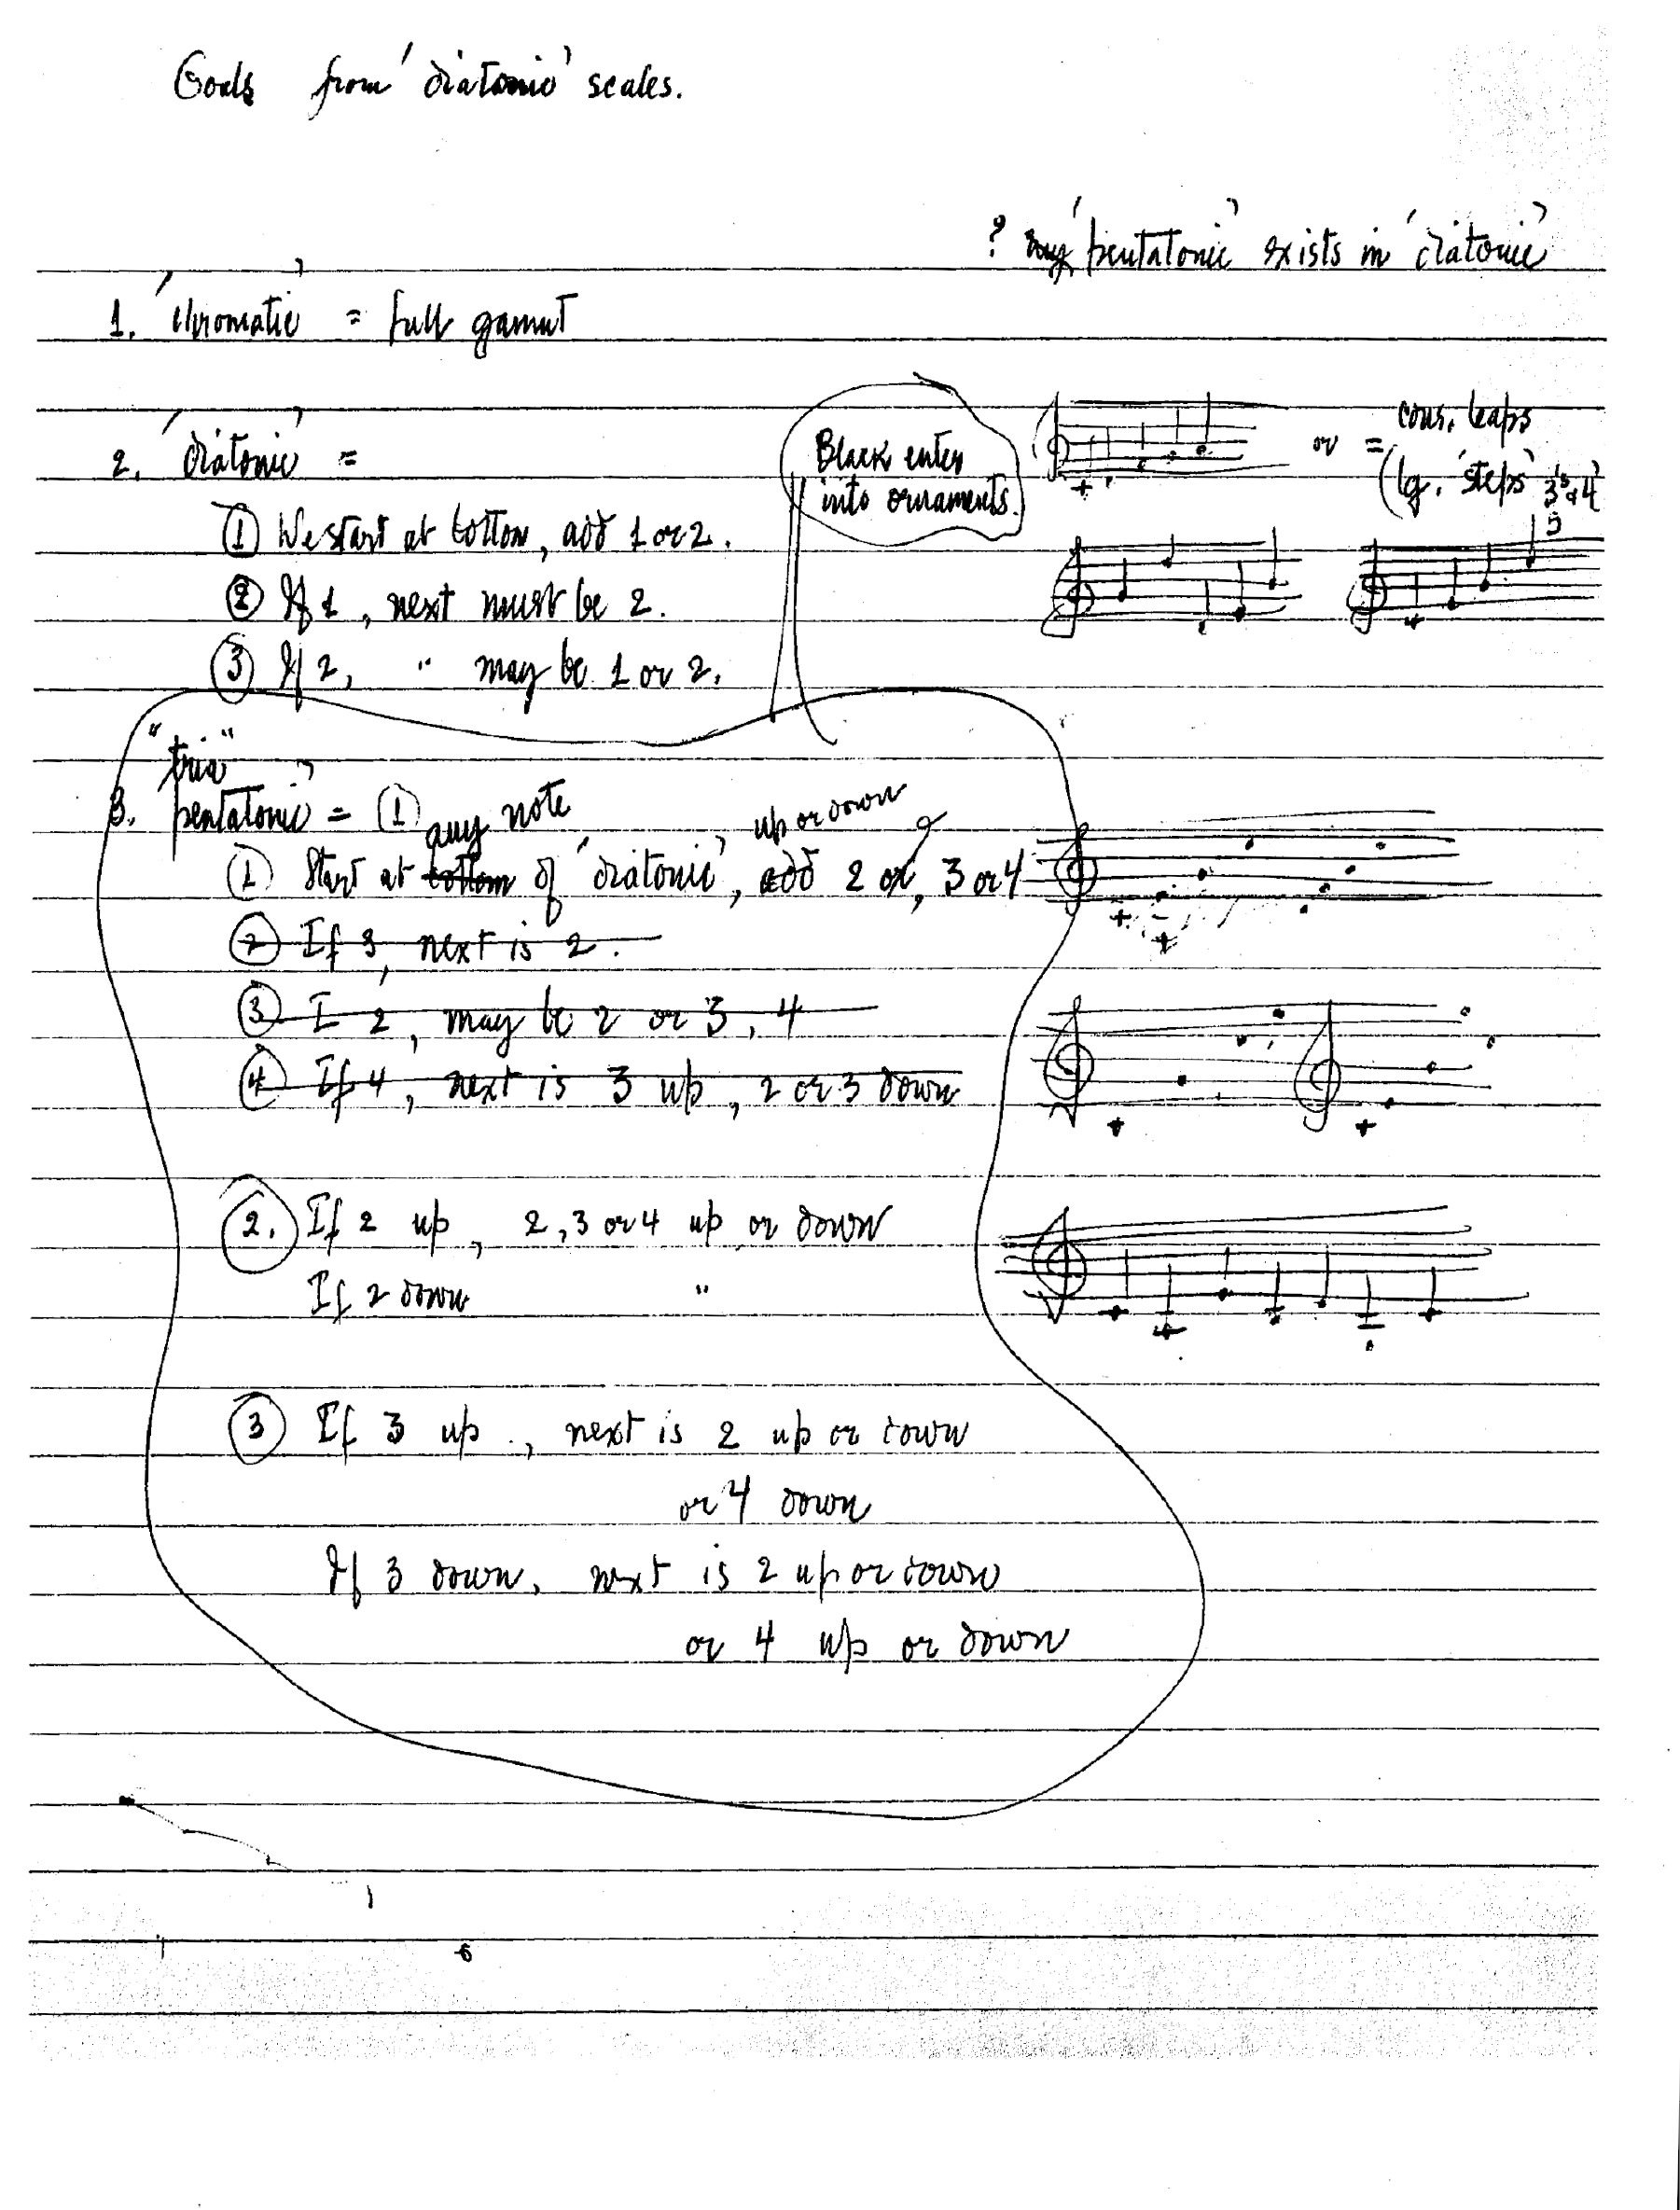 Goals from 'diatonic' scales.
? any 'pentatonic' exists in 'diatonic'
1. 'chromatic' = full gamut
2. 'diatonic' =
Black enter
into ornaments.
or = cons. leaps
(lg. 'steps' 3's & 4'
5
① We start at bottom, add 1 or 2.
② If 1, next must be 2.
③ If 2, " may be 1 or 2.
"tria"
3. pentatonic' = ① any note
up or down
① Start at bottom of 'diatonic', add 2 or, 3 or 4
② If 3, next is 2.
③ I 2, may be 2 or 3, 4
④ If 4, next is 3 up, 2 or 3 down
2. If 2 up, 2, 3 or 4 up or down
If 2 down "
③ If 3 up, next is 2 up or down
or 4 down
If 3 down, next is 2 up or down
or 4 up or down